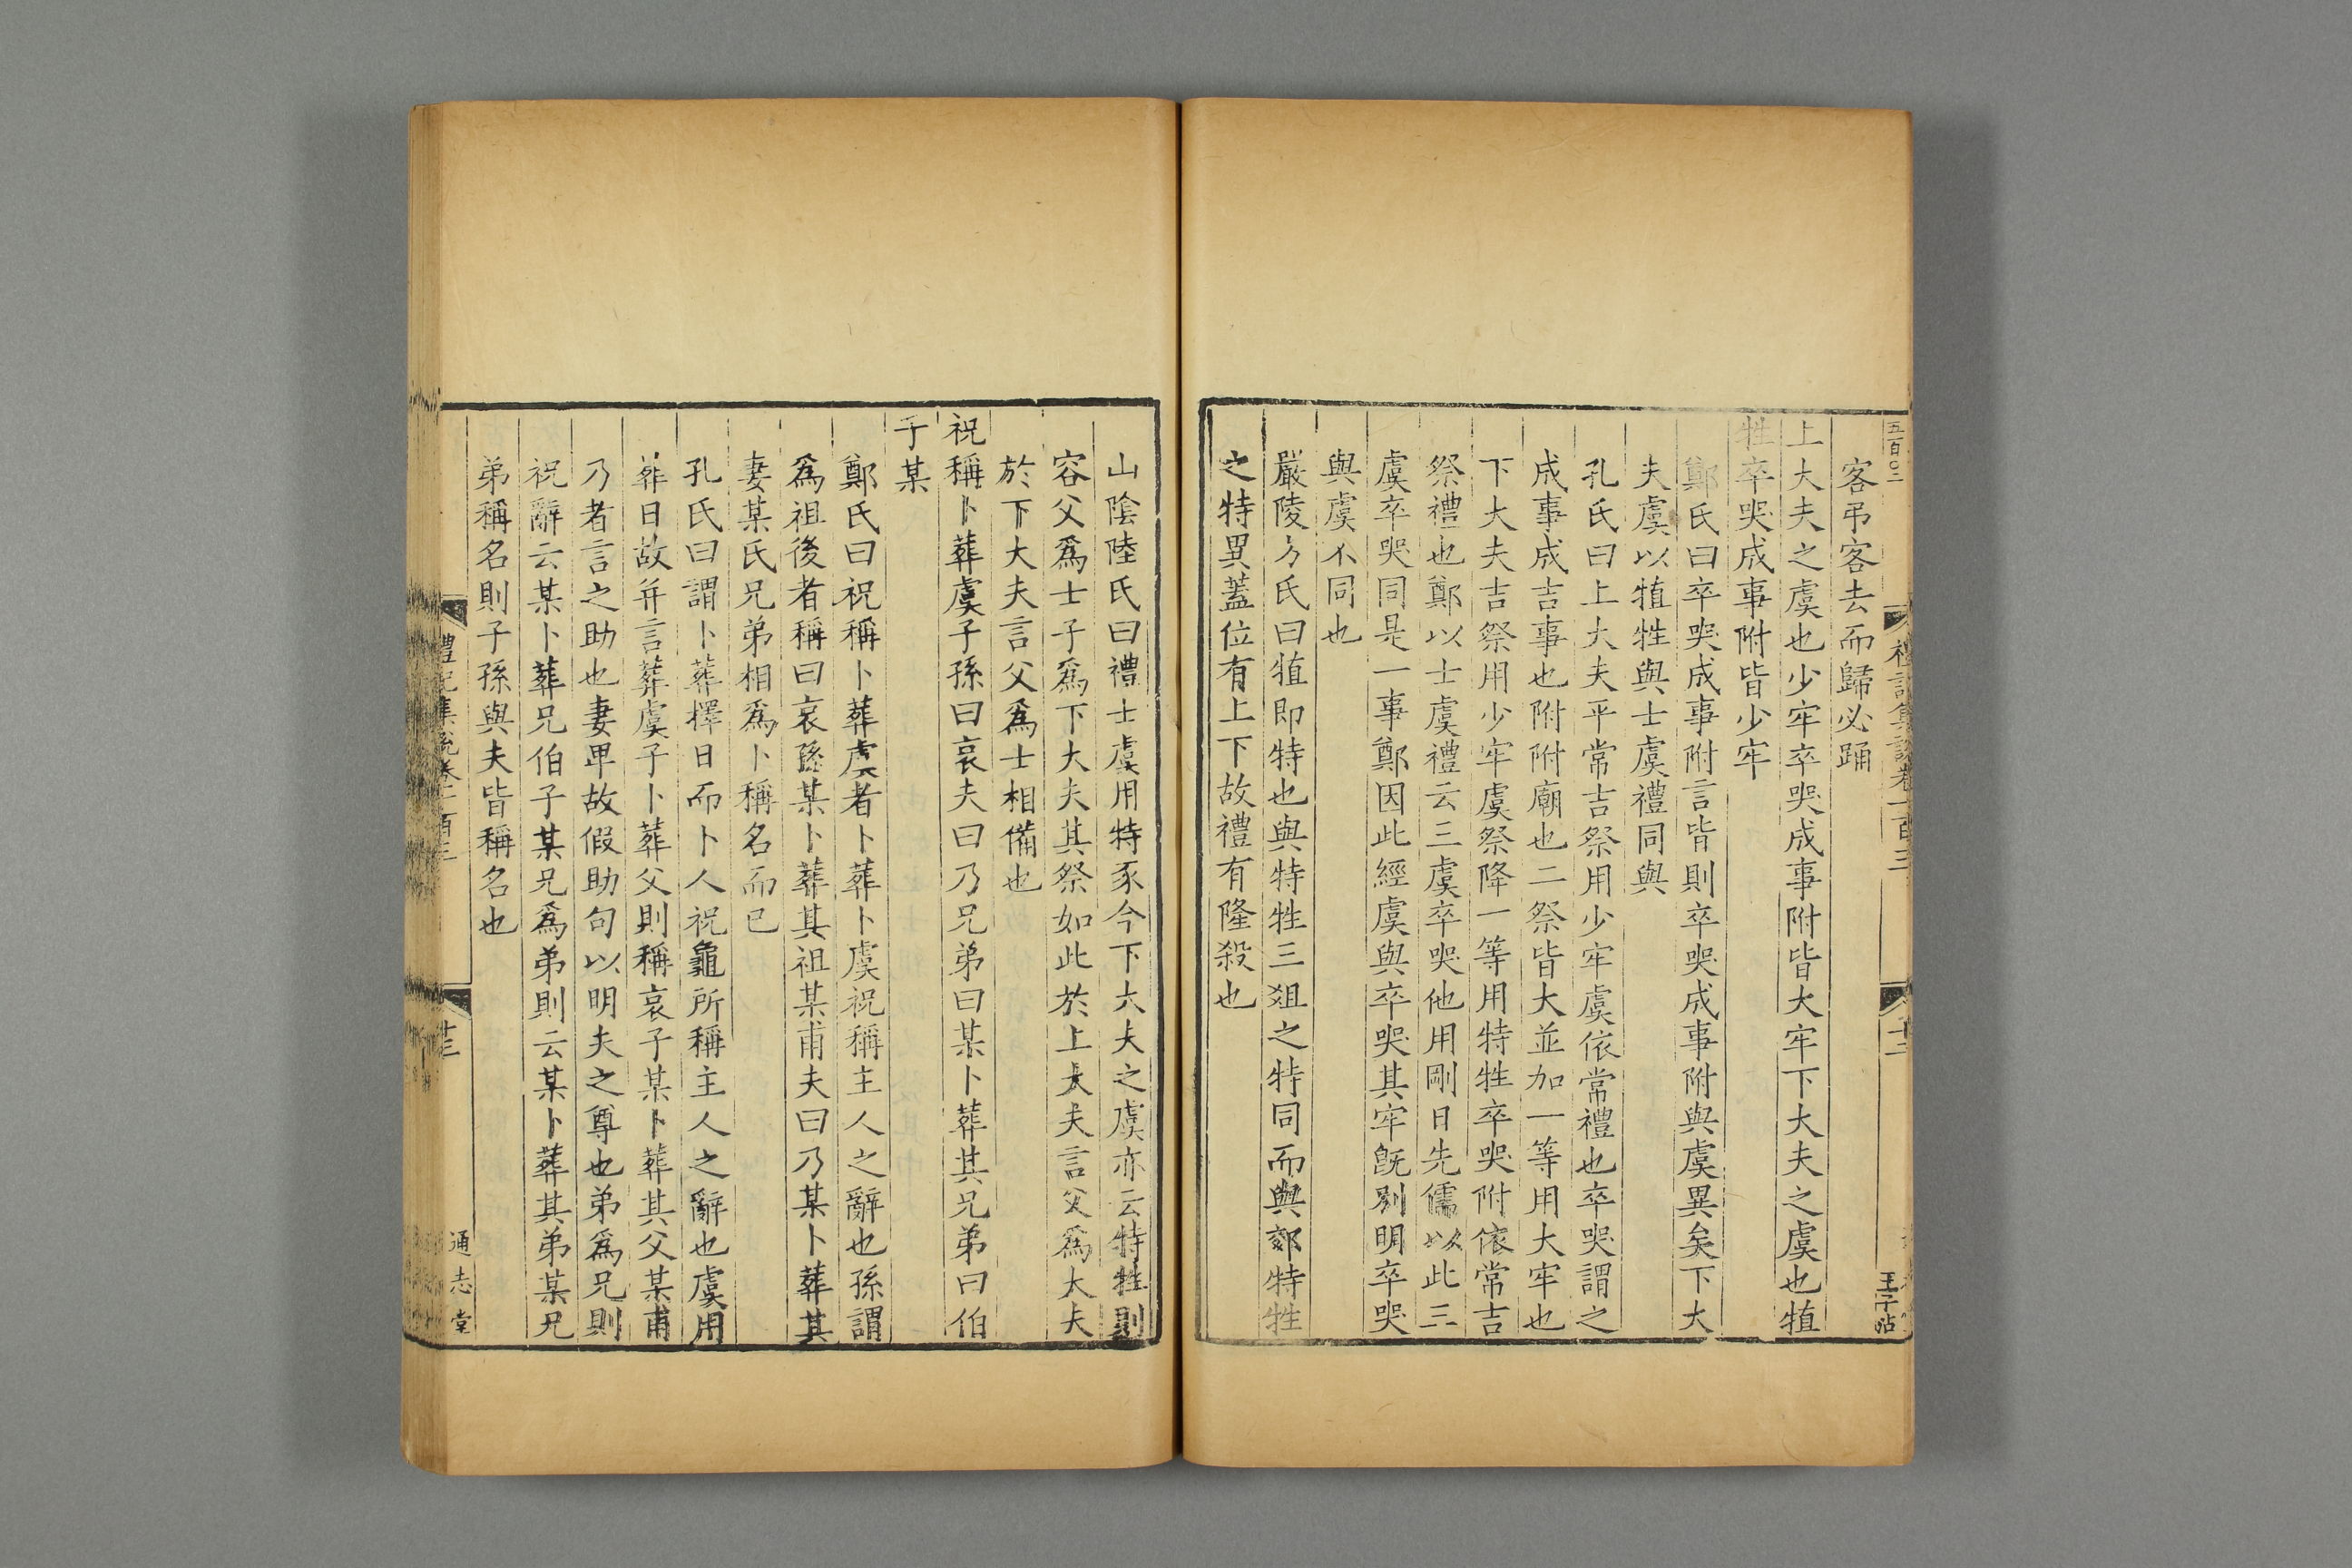 五百〇二
客弔客去而歸必踊
上大夫之虞也少牢卒哭成事附皆大牢下大夫之虞也犆
牲卒哭成事附皆少牢
鄭氏曰卒哭成事附言皆則卒哭成事附與虞異矣下大
夫虞以犆牲與士虞禮同與
孔氏曰上大夫平常吉祭用少牢虞依常禮也卒哭謂之
成事成吉事也附附廟也二祭皆大並加一等用大牢也
下大夫吉祭用少牢虞祭降一等用特牲卒哭附依常吉
祭禮也鄭以士虞禮云三虞卒哭他用剛日先儒以此三
虞卒哭同是一事鄭因此經虞與卒哭其牢旣別明卒哭
與虞不同也
嚴陵方氏曰犆即特也與特牲三俎之特同而與郊特牲
之特異蓋位有上下故禮有隆殺也
禮記集說卷一百三
十二
王子帖
山陰陸氏曰禮士虞用特豕今下大夫之虞亦云特牲則
容父爲士子爲下大夫其祭如此於上大夫言父爲大夫
於下大夫言父爲士相備也
祝稱卜葬虞子孫曰哀夫曰乃兄弟曰某卜葬其兄弟曰伯
子某
鄭氏曰祝稱卜葬虞者卜葬卜虞祝稱主人之辭也孫謂
爲祖後者稱曰哀孫某卜葬其祖某甫夫曰乃某卜葬其
妻某氏兄弟相爲卜稱名而已
孔氏曰謂卜葬擇日而卜人祝龜所稱主人之辭也虞用
葬日故并言葬虞子卜葬父則稱哀子某卜葬其父某甫
乃者言之助也妻卑故假助句以明夫之尊也弟爲兄則
祝辭云某卜葬兄伯子某兄爲弟則云某卜葬其弟某兄
弟稱名則子孫與夫皆稱名也
禮記集說卷一百三
十三
通志堂